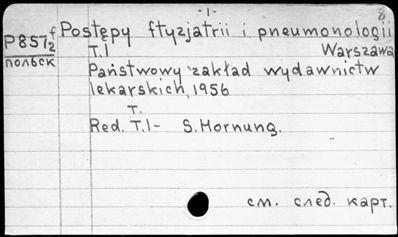 -1-
8
Postępy ftyzjatrii i pneumonologii
P857f/2
T.I Warszawa
польск
Państwowy zakład wydawnictw
lekarskich, 1956
т.
Red. T.I- S.Hornung.
см. след. карт.